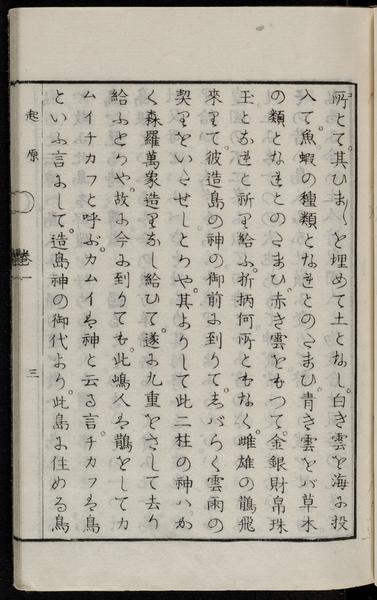 所とて。其ひま〳〵を埋めて土となし。白き雲を海に投
入て。魚蝦の種類となれとのたまひ。青き雲をバ草木
の類となれとのたまひ。赤き雲をもつて。金銀財帛珠
玉となれと祈り給ふ。折柄何所ともなく。雌雄の鵲飛
來りて。彼造島の神の御前に到りて。志バらく雲雨の
契りをいたせしとぞや。其よりして此二柱の神ハか
く森羅萬象造りなし給ひて。遂に九重をさして去り
給ふとかや。故に今に到りても。此嶋人は鵲をしてカ
ムイチカフと呼ぶ。カムイは神と云る言。チカフは鳥
といふ言にして。造島神の御代より。此島に住める鳥
起原
卷一
三